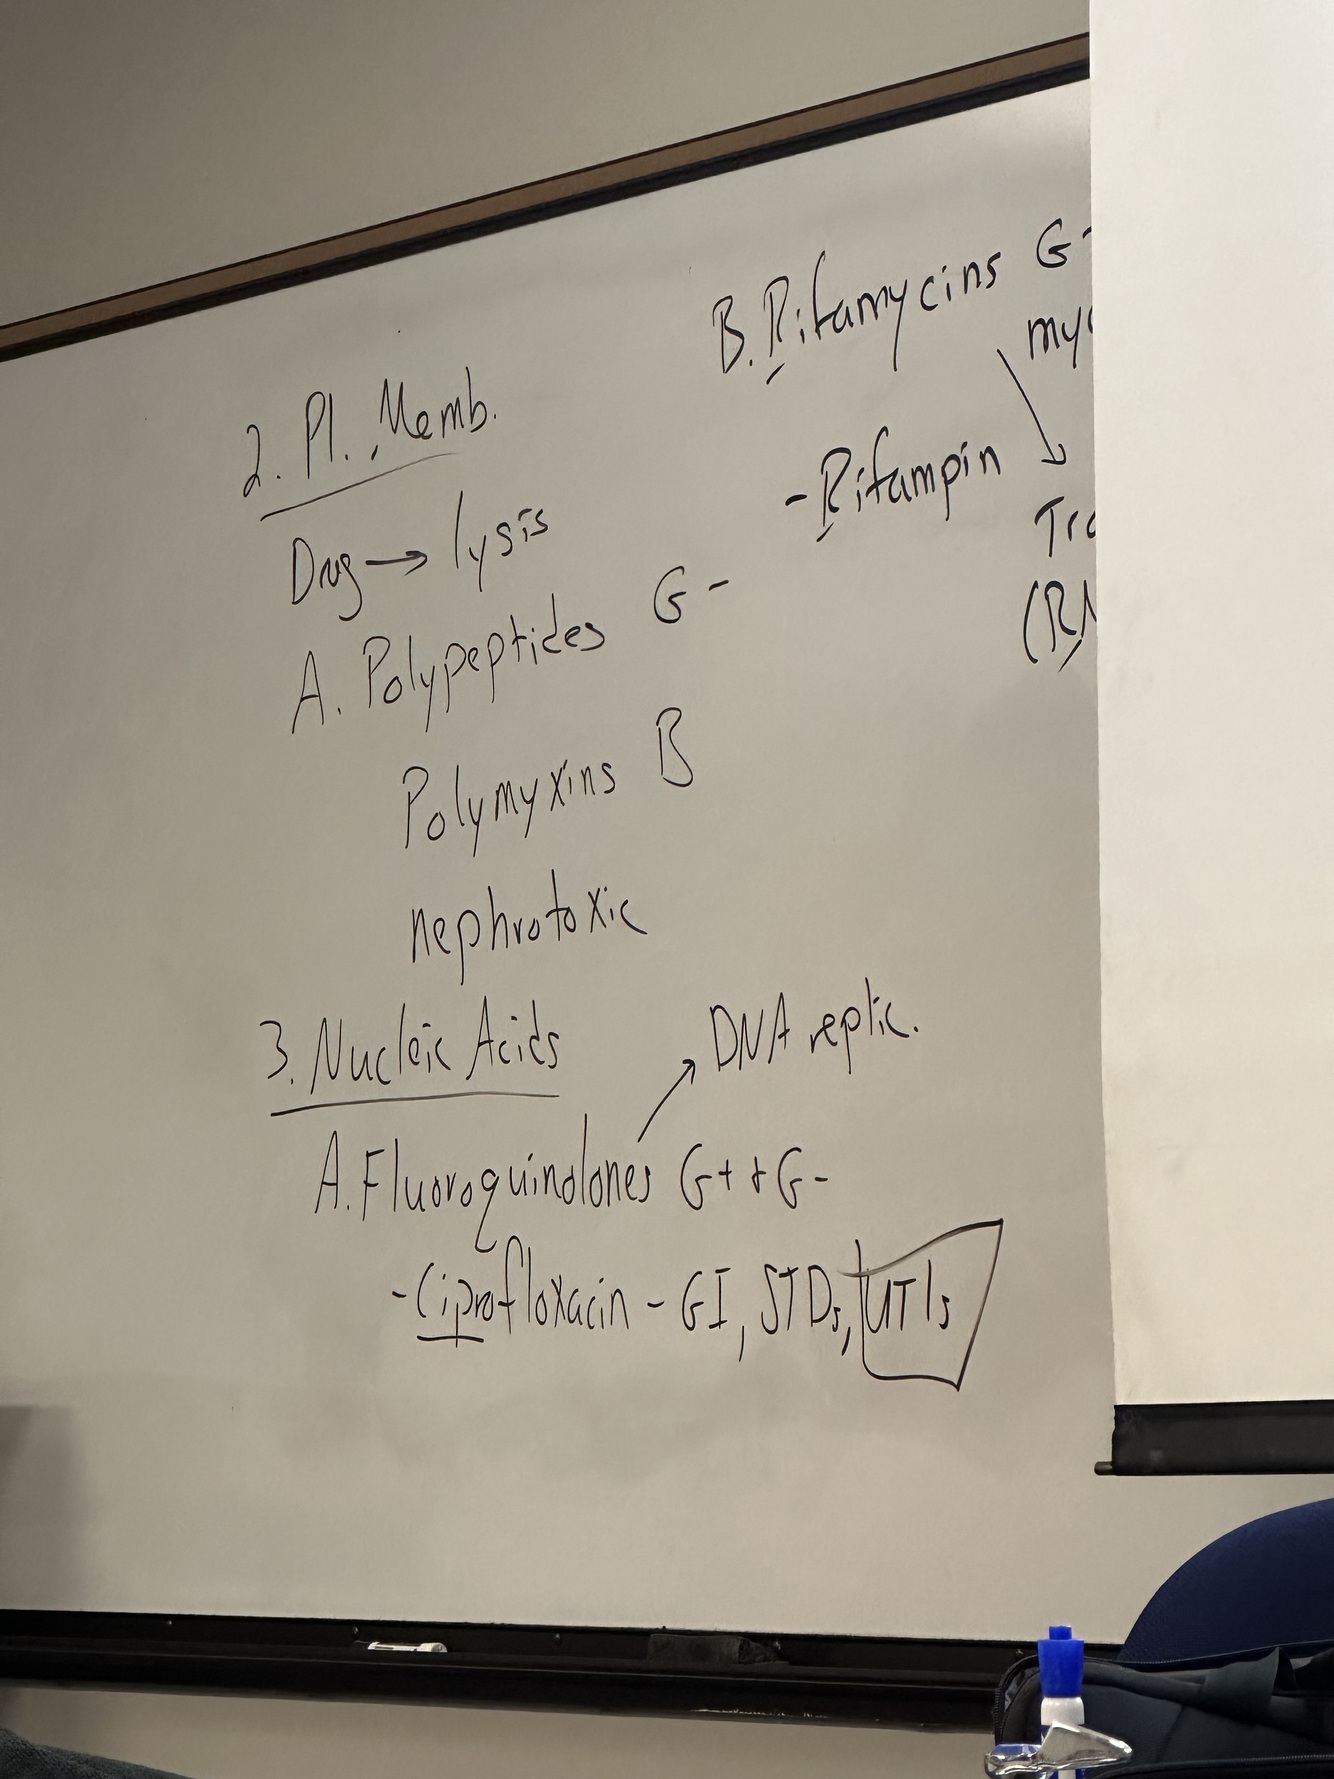 2. Pl. Memb.
Drug → lysis
A. Polypeptides G-
Polymyxins B
nephrotoxic
3. Nucleic Acids
DNA replic.
A. Fluoroquinolones G+ + G-
- Ciprofloxacin - GI, STDs, UTIs
B. Rifamycins G
- Rifampin